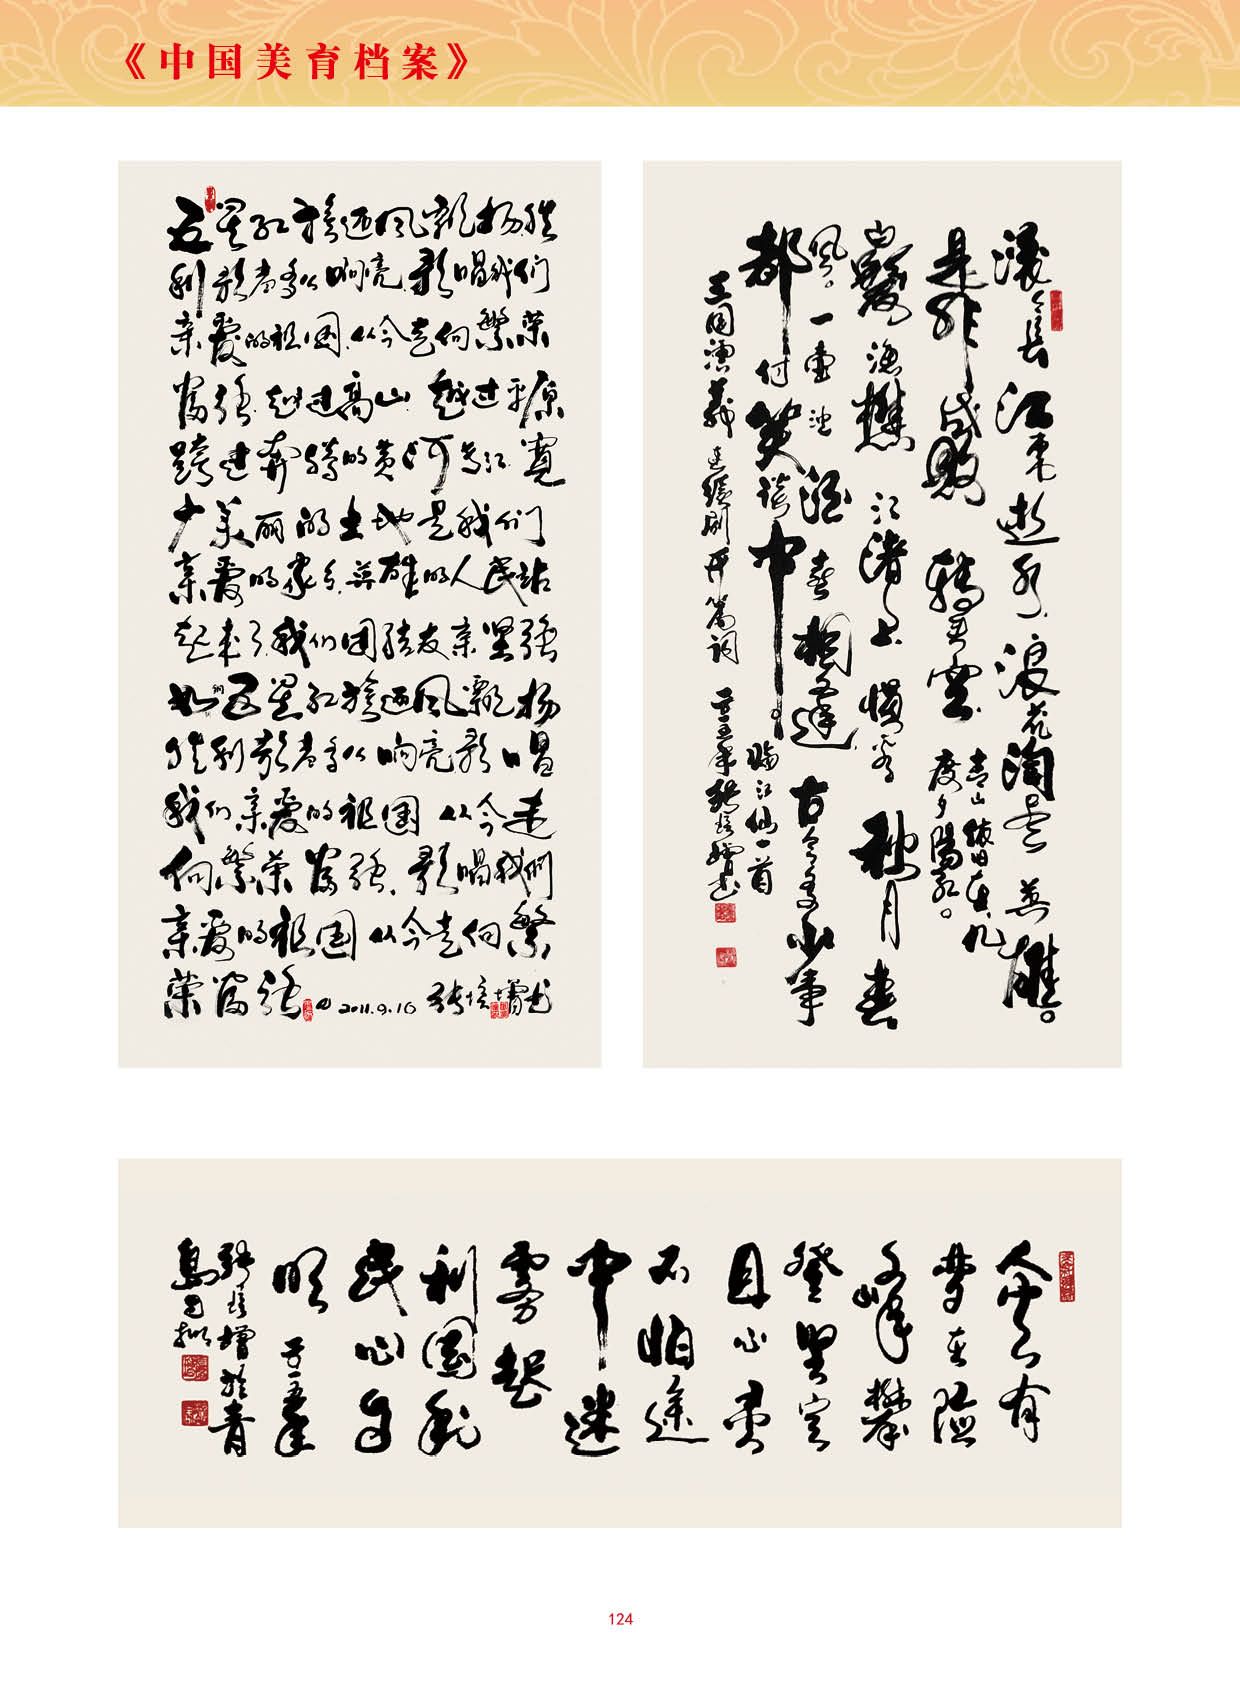 《中国美育档案》
五星红旗迎风飘扬胜
利歌声多么响亮歌唱我们
亲爱的祖国从今走向繁荣
富强越过高山越过平原
跨过奔腾的黄河长江宽
广美丽的土地是我们
亲爱的家乡英雄的人民站
起来了我们团结友爱坚强
如钢五星红旗迎风飘扬
胜利歌声多么响亮歌唱
我们亲爱的祖国从今走
向繁荣富强歌唱我們
亲爱的祖国从今走向繁
荣富强 2011.9.16 张培增书
滚滚長江東逝水浪花淘尽英雄。
是非成敗轉頭空青山依旧在几
度夕陽红。
白髮漁樵江渚上慣看秋月春
風。一壶浊酒喜相逢古今多少事
都付笑談中。臨江仙一首
三国演義連續剧开篇词 张培增书
人
有
梦在险
峰攀
登坚定
目
不怕途
中迷
雾起
利國利
民心自
明
张培增於青
島
124